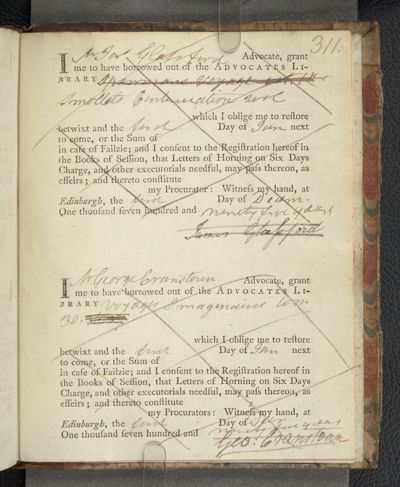 311.
I Mr Jas Glassford Advocate, grant
me to have borrowed out of the ADVOCATES LI-
BRARY
Smollets Continuation
which I oblige me to restore
betwixt and the Day of Jan next
to come, or the Sum of
in case of Failzie; and I consent to the Registration hereof in
the Books of Session, that Letters of Horning on Six Days
Charge, and other executorials needful, may pass thereon, as
effeirs; and thereto constitute
my Procurator: Witness my hand, at
Edinburgh, the Day of Decem.
One thousand seven hundred and ninety five years
James Glassford
I Mr George Cranstoun Advocate, grant
me to have borrowed out of the ADVOCATES LI-
BRARY Voyages Imaginaires tom
30.
which I oblige me to restore
betwixt and the Day of Jan next
to come, or the Sum of
in case of Failzie; and I consent to the Registration hereof in
the Books of Session, that Letters of Horning on Six Days
Charge, and other executorials needful, may pass thereon, as
effeirs; and thereto constitute
my Procurators: Witness my hand, at
Edinburgh, the Day of
One thousand seven hundred and ninety five years
Geo: Cranstoun